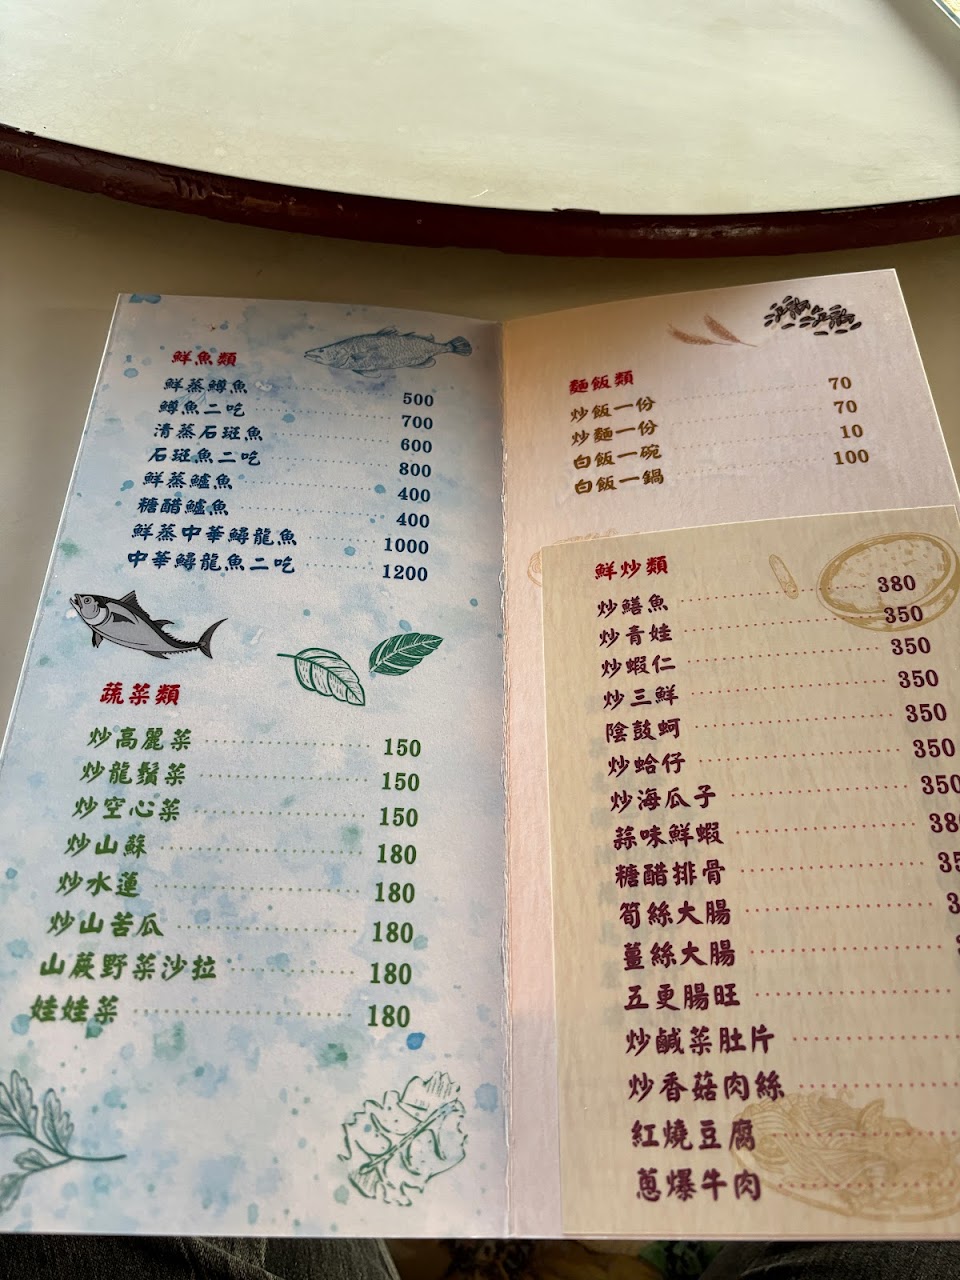 鮮魚類
鮮蒸鱒魚 500
鱒魚二吃 700
清蒸石斑魚 600
石斑魚二吃 800
鮮蒸鱸魚 400
糖醋鱸魚 400
鮮蒸中華鱘龍魚 1000
中華鱘龍魚二吃 1200
蔬菜類
炒高麗菜 150
炒龍鬚菜 150
炒空心菜 150
炒山蘇 180
炒水蓮 180
炒山苦瓜 180
山蕨野菜沙拉 180
娃娃菜 180
麵飯類
炒飯一份 70
炒麵一份 70
白飯一碗 10
白飯一鍋 100
鮮炒類
炒鱔魚 380
炒青娃 350
炒蝦仁 350
炒三鮮 350
陰鼓蚵 350
炒蛤仔 350
炒海瓜子 350
蒜味鮮蝦 380
糖醋排骨 35
筍絲大腸 3
薑絲大腸
五更腸旺
炒鹹菜肚片
炒香菇肉絲
紅燒豆腐
蔥爆牛肉